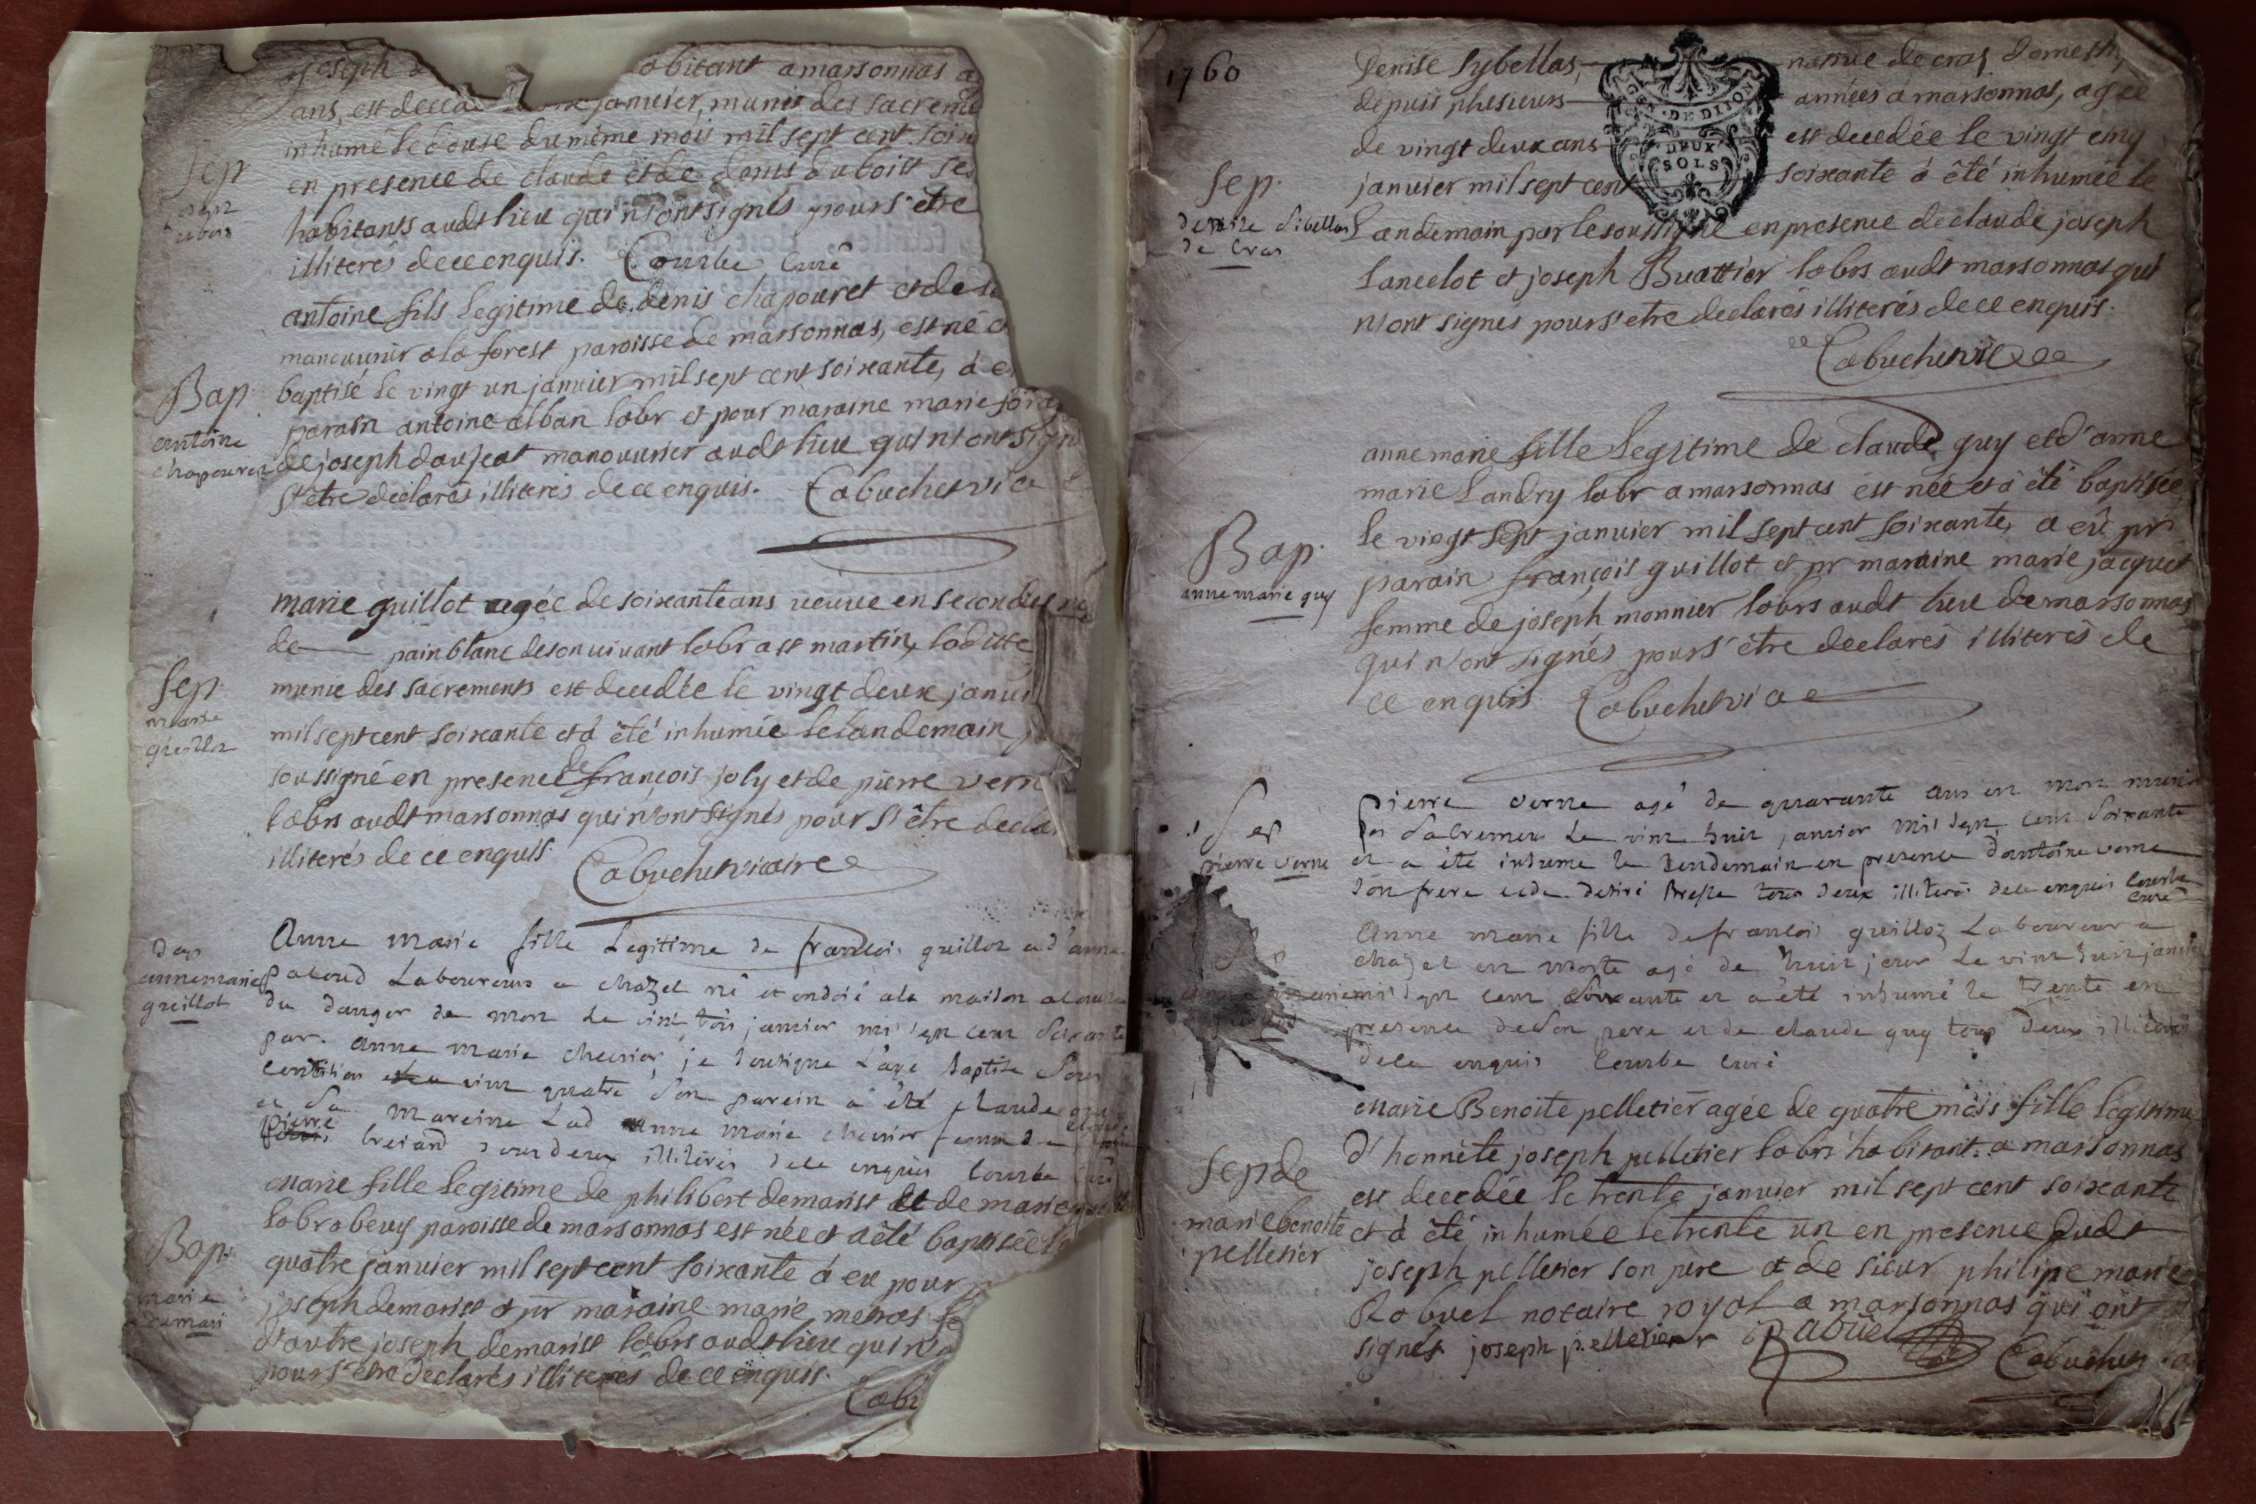 joseph habitant a marsonnas a
ans, est decedé janvier, munit des sacreme
inhumé le douse du même mois mil sept cent soix
en presence de claude et de denis duboist
habitants audt lieu qui n'ont signés pour s'être
illiterés de ce enquis. Courbe curé
Sep
joseph
dubois
antoine fils legitime de denis chapouret et de
manouvrier a la forest paroisse de marsonnas, est né
baptisé le vingt un janvier mil sept cent soixante, à
parain antoine alban labr et pour maraine marie
de joseph daujeat manouvrier audt lieu qui n'ont signé
s'être declarés illiterés de ce enquis. Cabuchet vic
Bap
antoine
chapouret
marie guillot agée de soixante ans veuve en secondes
de painblanc de son vivant labr a st martin, laditte
munie des sacrements est decedée le vingt deux janvi
mil sept cent soixante et à été inhumée le landemain
soussigné en presence de françois joly et de pierre vern
labrs audt marsonnas qui n'ont signés pour s'être decla
illiterés de ce enquis. Cabuchet vicaire
Sep
marie
guillot
Anne marie fille Legitime de francois guillot et d'anne
Laboureurs a chazel né et ondoié a la maison a cause
du danger de mort le vint trois janvier mil sept cent soixante
par anne marie chevrier, je soussigné l'aye baptisé sous
condition vint quatre son parein a été claude
et sa mareine Lad anne marie chevrier femme de
pierre breiand tous deux illiterés de ce enquis Courbe curé
Bap
anne marie
guillot
Marie fille legitime de philibert demarist et de marie
labr a beuy paroisse de marsonnas est née et a été baptisée
quatre janvier mil sept cent soixante à eu pour
joseph demarist et pr maraine marie metras
d'autre joseph demarist labrs audt lieu qui n'
pour s'être declarés illiterés de ce enquis.
Cabu
Bap
marie
demari
1760
Denise Sybellas, native de cras domesti
depuis plusieurs années a marsonnas, agée
de vingt deux ans est decedée le vingt cinq
janvier mil sept cent soixante à été inhumée le
Landemain par le soussigné en presence de claude joseph
Lancelot et joseph Buattier labrs audt marsonnas qui
n'ont signés pour s'etre declarés illiterés de ce enquis.
Cabuchet vic
GEN. DE DIJON
DEUX
SOLS
Sep.
denise sibellas
de Cras
anne marie fille legitime de claude guy et d'anne
marie Landry labr a marsonnas est née et à été baptisée
le vingt sept janvier mil sept cent soixante, a eû pr
parain françois guillot et pr maraine marie jacquet
femme de joseph monnier labrs audt lieu de marsonnas
qui n'ont signés pour s'être declarés illiterés de
ce enquis. Cabuchet vic
Bap.
anne marie guy
pierre verne agé de quarante ans est mort muni
des sacremens le vint huit janvier mil sept cent soixante
et a été inhumé le lendemain en presence d'antoine verne
son frere et de desiré tous deux illiterés de ce enquis Courbe
curé
Sep
pierre verne
Anne marie fille de francois guillot Laboureur a
chazel est morte agé de huit jour le vint huit janvier
mil sept cent soixante et a été inhumé le trente en
presence de son pere et de claude guy tous deux illiterés
de ce enquis Courbe curé
Marie Benoite pelletier agée de quatre mois fille legitime
d'honnête joseph pelletier labr habitant a marsonnas
est decedée le trente janvier mil sept cent soixante
et à été inhumée le trente un en presence dudt
joseph pelletier son pere et de sieur philipe marie
Rabuel notaire royal a marsonnas qui ont
signés joseph pelletier Rabuel Cabuchet
Sep de
marie benoite
pelletier